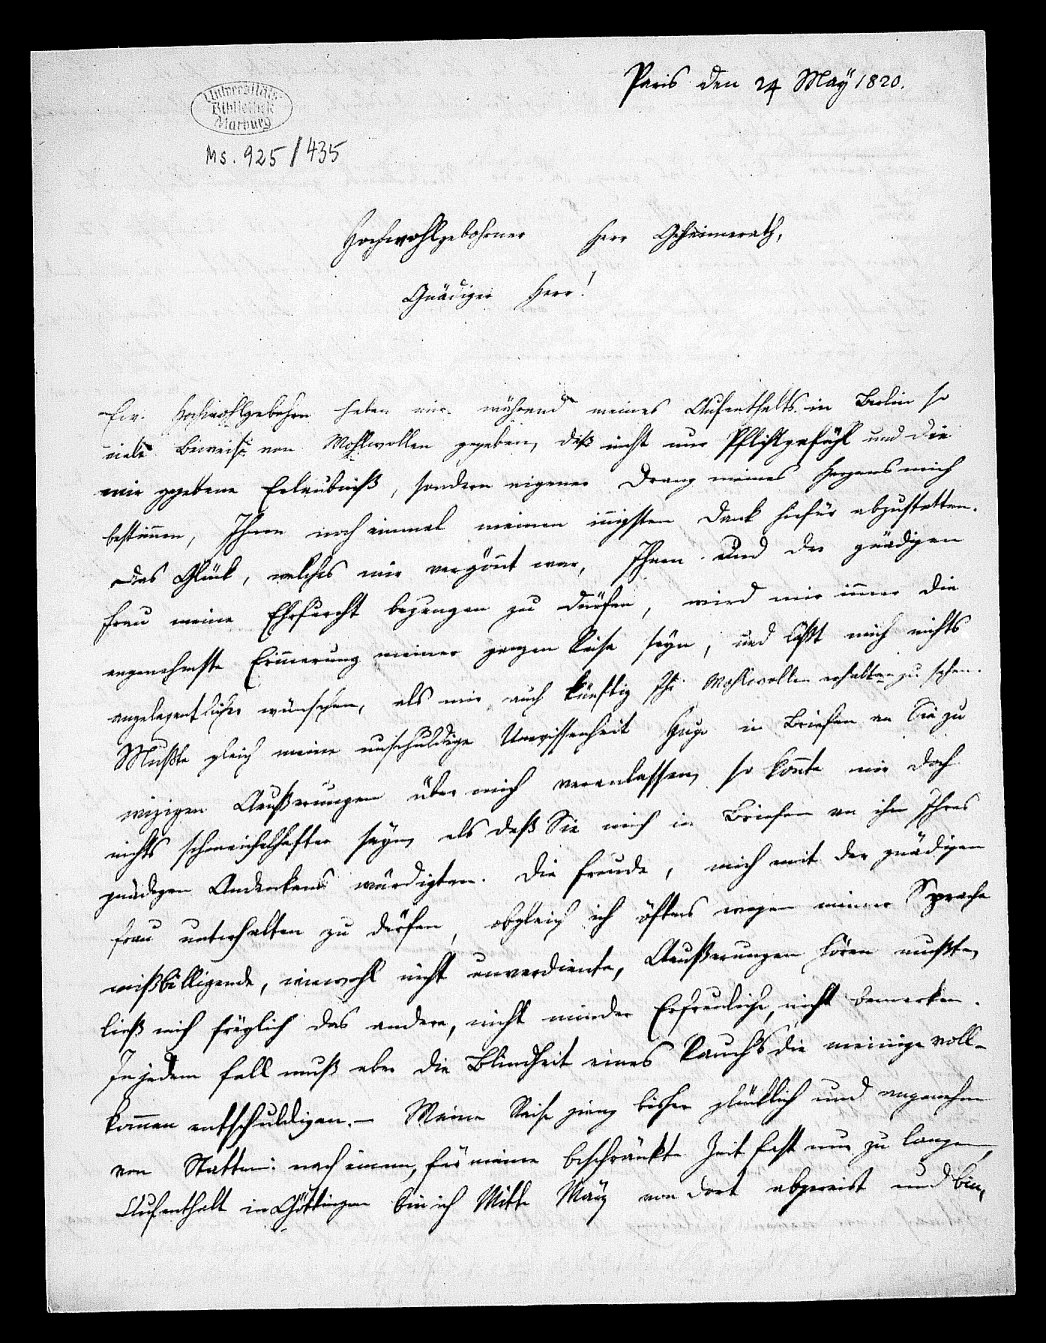 Paris den 24 May 1820.
Universitäts-
Bibliothek
Marburg
Ms. 925/435
Hochwohlgebohrner Herr Geheimerath,
Gnädiger Herr!
Ew. Hochwohlgebohren haben mir während meines Aufenthalts in Berlin so
viele Beweise von Wohlwollen gegeben, daß nicht nur Pflichtgefühl und die
mir gegebene Erlaubniß, sondern eigener Drang meines Herzens mich
bestimmen, Ihnen noch einmal meinen innigsten Dank hiefür abzustatten.
Das Glück, welches mir vergönnt war, Ihnen und der gnädigen
Frau meine Ehrfurcht bezeugen zu dürfen, wird mir immer die
angenehmste Erinnerung meiner ganzen Reise seyn, und läßt mich nichts
angelegentlicher wünschen, als mir auch künftig Ihr Wohlwollen erhalten zu sehen.
Mußte gleich meine unschuldige Unwissenheit Hugo in Briefen an Sie zu
witzigen Äußerungen über mich veranlassen, so konnte mir doch
nichts schmeichelhafter seyn, als daß Sie mich in Briefen an ihn Ihres
gnädigen Andenkens würdigten. Die Freude, mich mit der gnädigen
Frau unterhalten zu dürfen, obgleich ich öfters wegen meiner Sprache
mißbilligende, wiewohl nicht unverdiente, Äußerungen hören mußte,
ließ mich füglich das andere, nicht minder Erfreuliche, nicht bemerken.
In jedem Fall muß aber die Blindheit eines Rauchs die meinige voll-
kommen entschuldigen. – Meine Reise ging bisher glücklich und angenehm
von Statten: nach einem, für meine beschränkte Zeit fast nur zu langen,
Aufenthalt in Göttingen bin ich Mitte März von dort abgereist und bin,